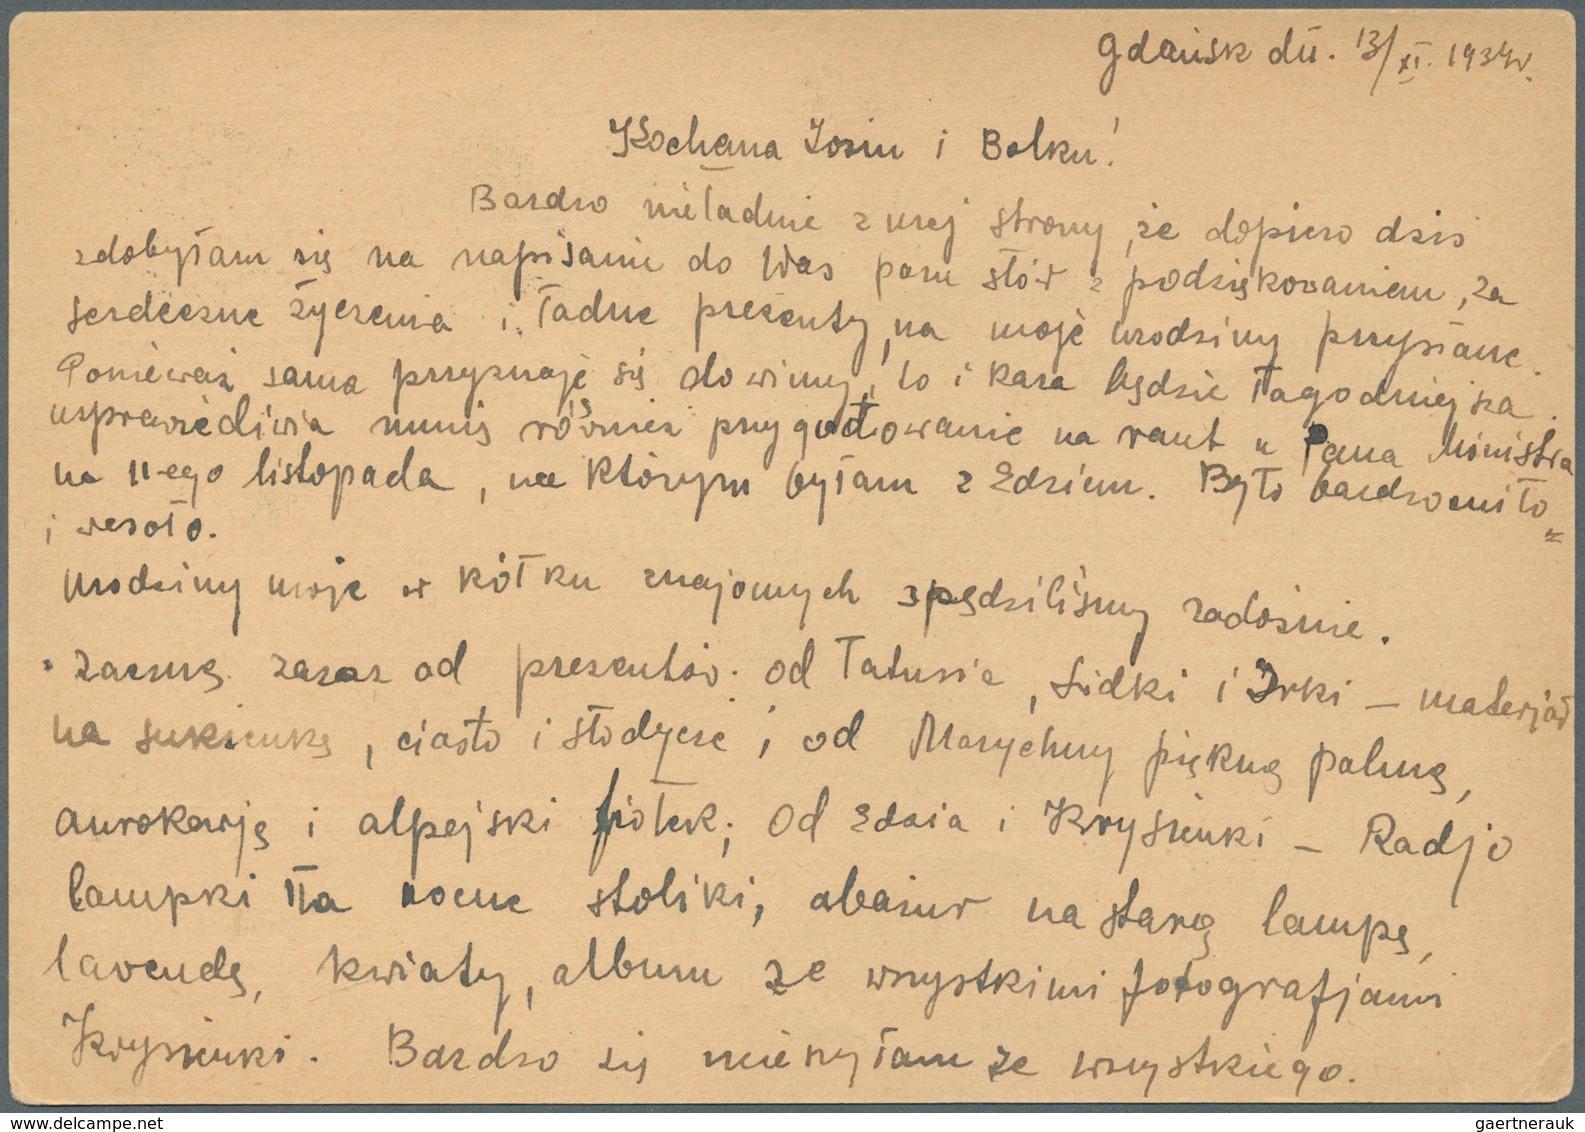 Gdańsk dń. 13/XI. 1934r.
Kochana Zosiu i Bolku!
Bardzo nieładnie z mej strony, że dopiero dziś
zdobyłam się na napisanie do Was paru słów z podziękowaniem, za
serdeczne życzenia i ładne prezenty, na moje urodziny przysłane.
Ponieważ sama przyznaję się do winy, to i kara będzie łagodniejsza.
usprawiedliwia mnię również przygotowanie na raut u Pana Ministra
na 11-ego listopada, na którym byłam z Edziem. Było bardzo miło
i wesoło.
Urodziny moje w kółku znajomych spędziliśmy radośnie.
Zacznę zaraz od prezentów. od Tatusia, Lidki i Irki – materjał
na sukienkę, ciasto i słodycze; od Marychny piękną palmę,
aurokarję i alpejski fiołek; Od Edzia i Krysieńki – Radjo
lampki na nocne stoliki, abażur na starą lampę,
lavendę, kwiaty, album ze wszystkimi fotografjami
Krysieńki. Bardzo się ucieszyłam ze wszystkiego.
gaertnerauk